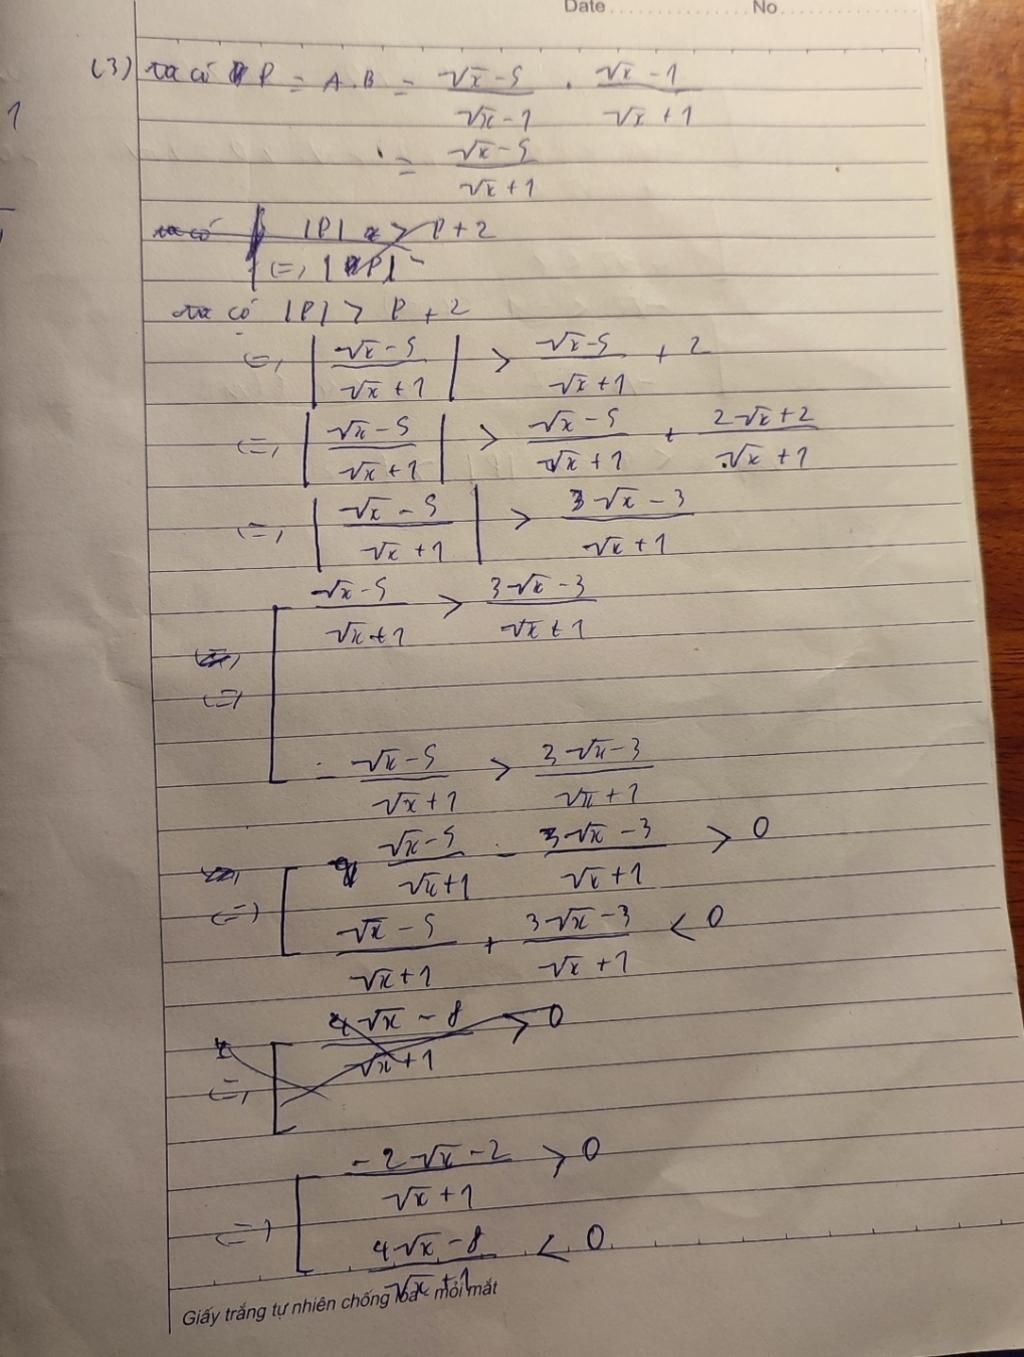 Date .................. No ..................
(3) ta có P = A.B = √x - 5 / √x - 1 . √x - 1 / √x + 1
1
= √x - 5 / √x + 1
ta có |P| > P + 2
(=) |P|
ta có |P| > P + 2
(=) | √x - 5 / √x + 1 | > √x - 5 / √x + 1 + 2
(=) | √x - 5 / √x + 1 | > √x - 5 / √x + 1 + 2√x + 2 / √x + 1
(=) | √x - 5 / √x + 1 | > 3√x - 3 / √x + 1
√x - 5 / √x + 1 > 3√x - 3 / √x + 1
(=)
(=)
- √x - 5 / √x + 1 > 3√x - 3 / √x + 1
√x - 5 / √x + 1 - 3√x - 3 / √x + 1 > 0
(=) √x - 5 / √x + 1 + 3√x - 3 / √x + 1 < 0
(=) 4√x - 8 / √x + 1 > 0
-2√x - 2 / √x + 1 > 0
(=) 4√x - 8 / √x + 1 < 0
Giấy trắng tự nhiên chống loá - mỏi mắt